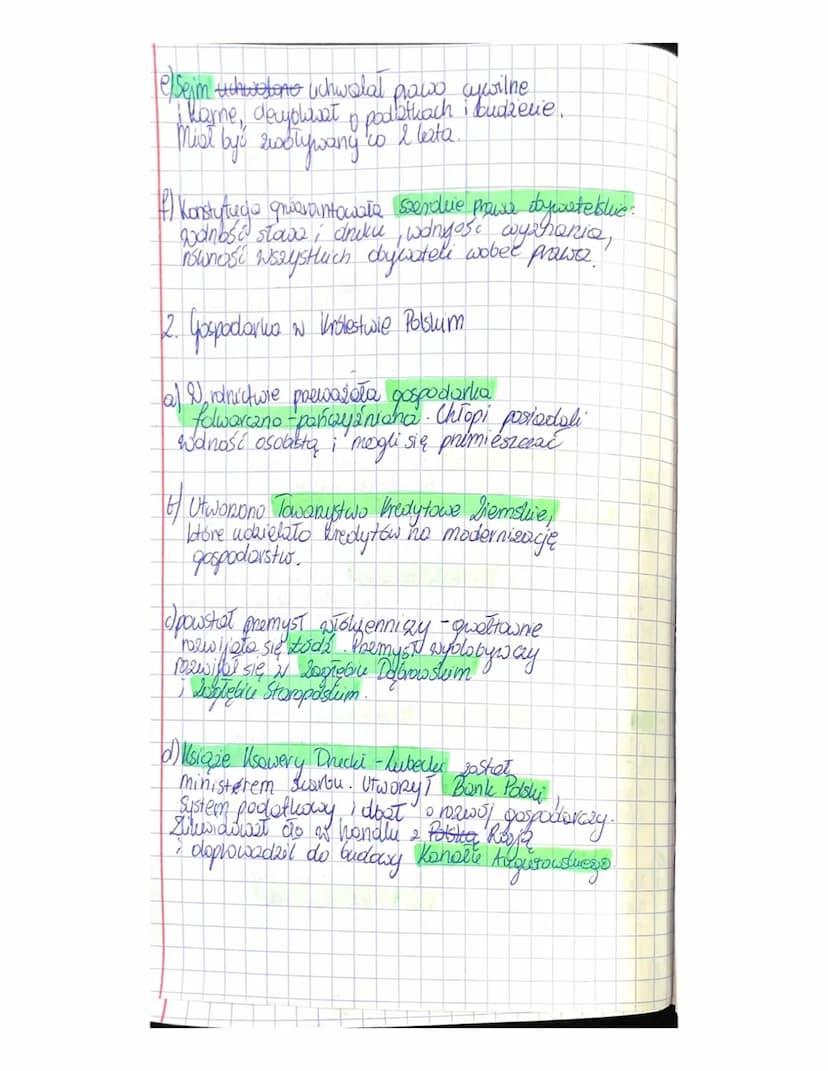 e) Sejm uchwolono uchwalał prawo cywilne
i karne, decydował o podatkach i budżecie.
Miał być zwoływany co 2 lata.
f) Konstytucja gwarantowała szerokie prawa obywatelskie:
wolność słowa i druku, wolność wyznania,
równość wszystkich obywateli wobec prawa.
2. Gospodarka w Królestwie Polskim
a) W rolnictwie przeważała gospodarka
folwarczno-pańszczyźniana. Chłopi posiadali
wolność osobistą i mogli się przmieszczać
b) Utworzono Towarzystwo Kredytowe Ziemskie,
które udzielało kredytów na modernizację
gospodarstw.
c) powstał przemysł włókienniczy - gwałtownie
rozwijała się Łódź. Przemysł wydobywczy
rozwijał się w Zagłębiu Dąbrowskim
i Zagłębiu Staropolskim.
d) Książe Ksawery Drucki-Lubecki został
ministerem skarbu. Utworzył Bank Polski,
system podatkowy i dbał o rozwój gospodarczy.
Zlikwidował cło w handlu z Polską Rosją
i doprowadził do budowy Kanału Augustowskiego